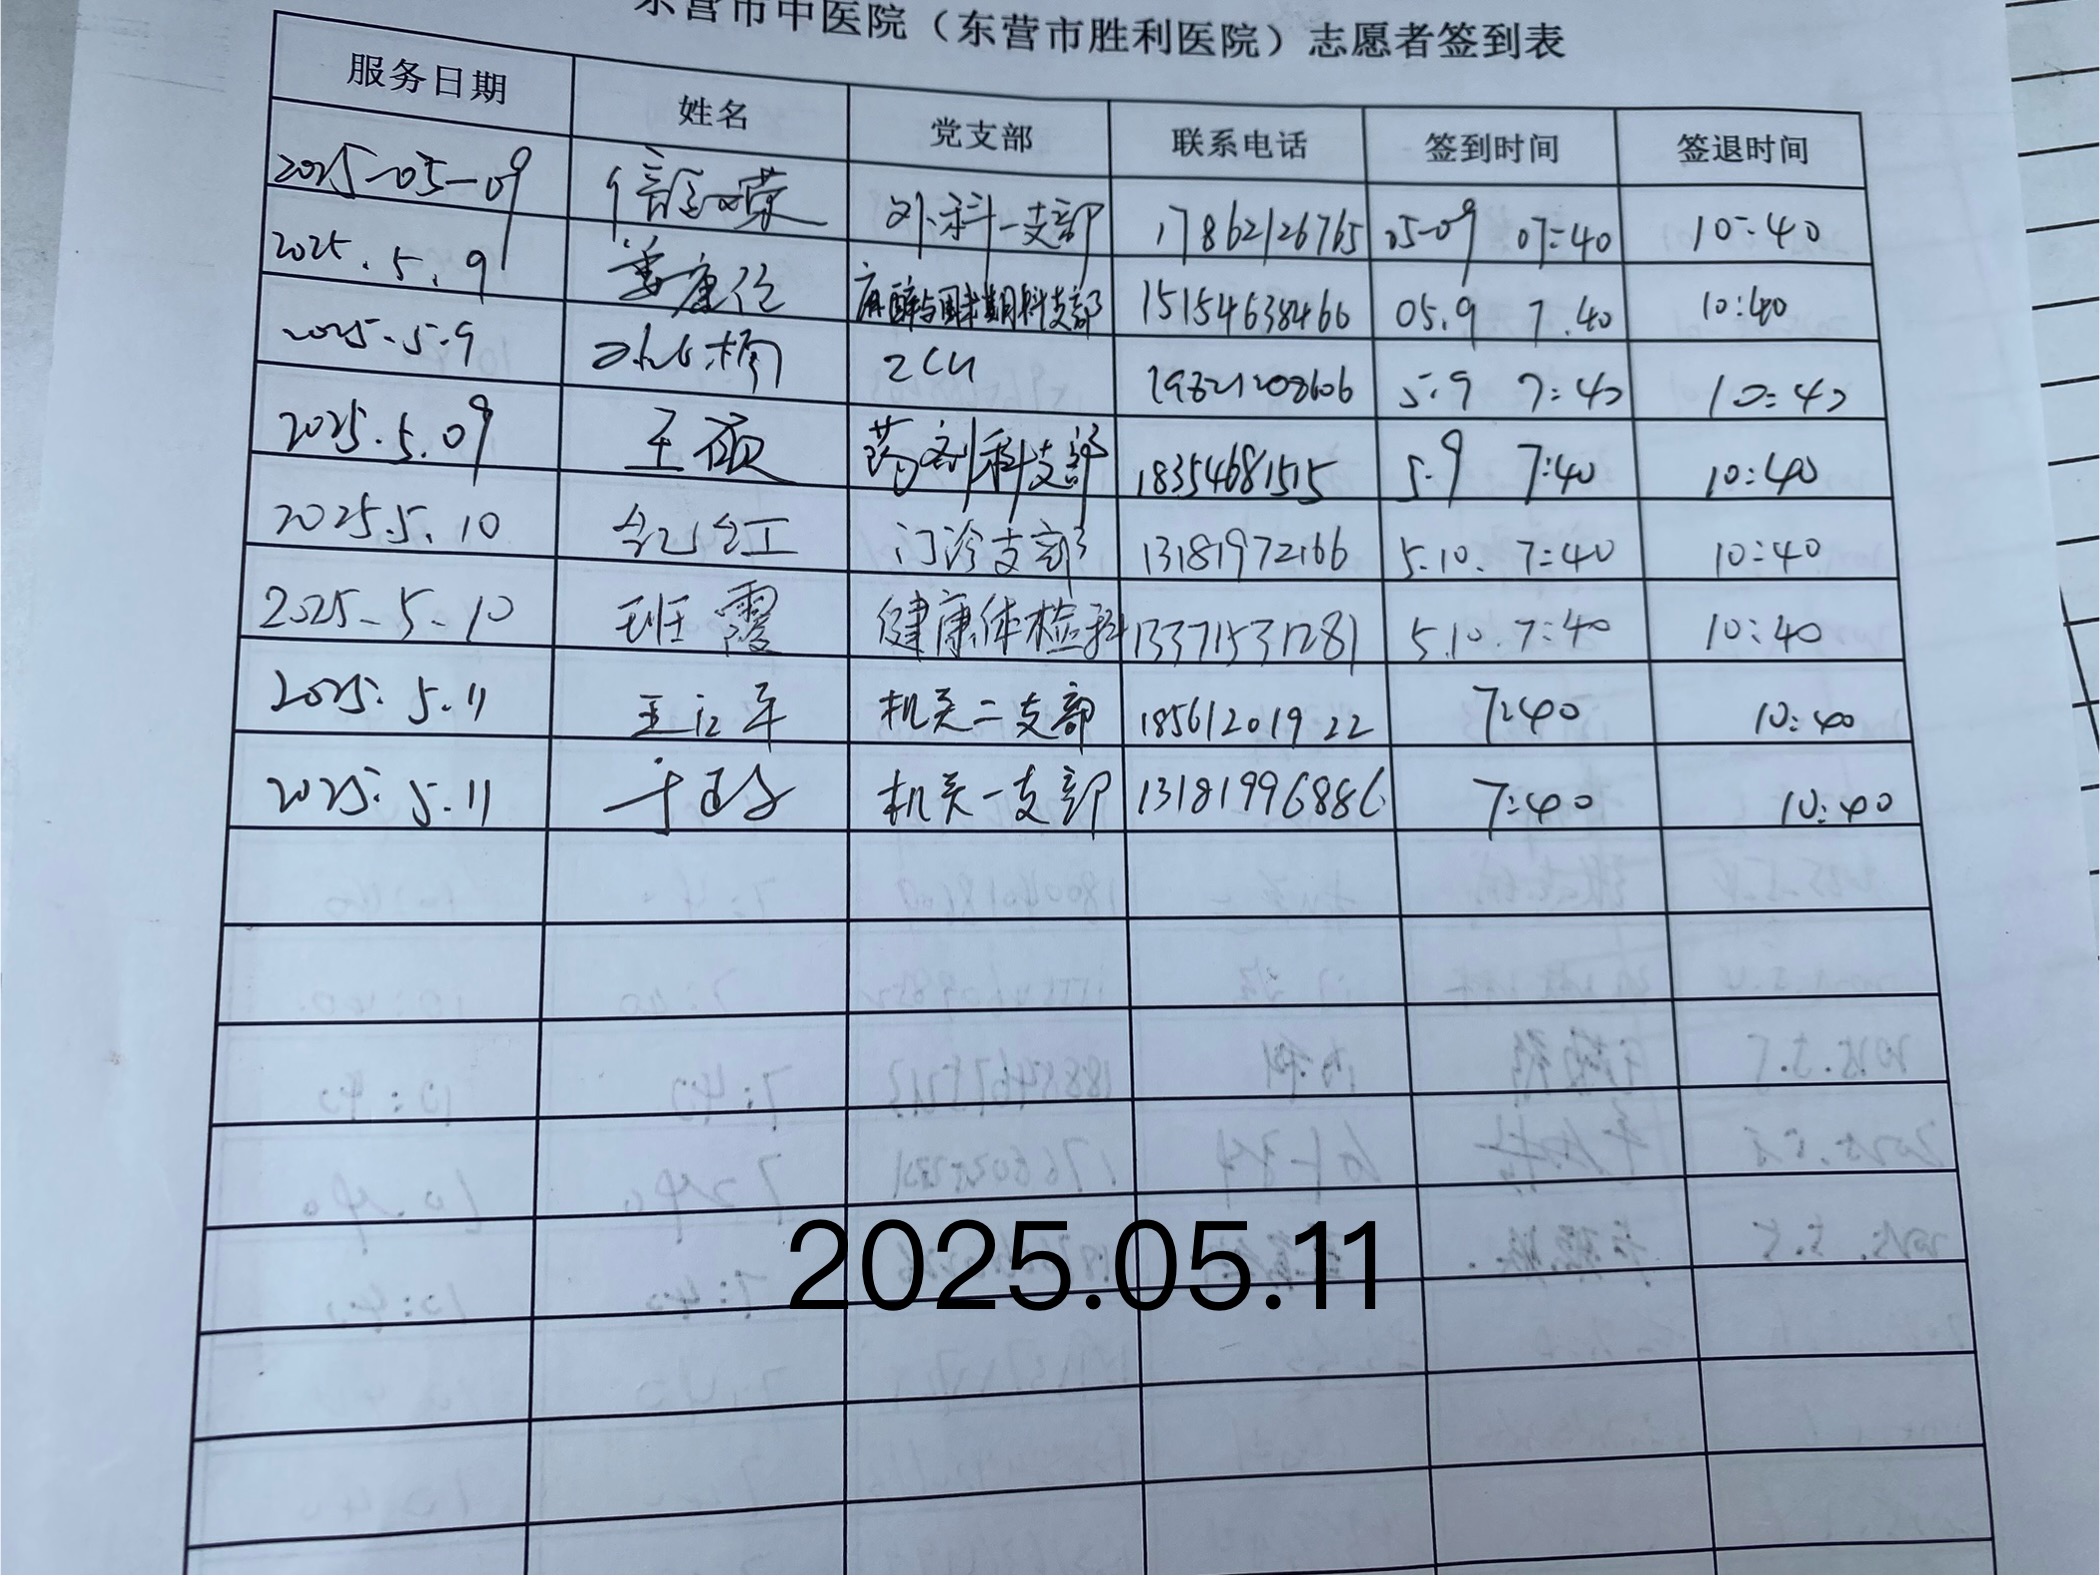 东营市中医院（东营市胜利医院）志愿者签到表
服务日期 姓名 党支部 联系电话 签到时间 签退时间
2025-05-09 外科一支部 17862126765 05-09 07:40 10:40
2025.5.9 麻醉与围术期科支部 15154638466 05.9 7.40 10:40
2025.5.9 5.9 7:40 10:40
2025.5.09 王硕 药剂科支部 18354681515 5.9 7:40 10:40
2025.5.10 门诊支部 13181972166 5.10. 7:40 10:40
2025-5-10 班霞 健康体检科 13371531281 5.10. 7:40 10:40
2025.5.11 机关二支部 18561201922 7:40 10:40
2025.5.11 机关一支部 13181996886 7:40 10:40
2025.05.11